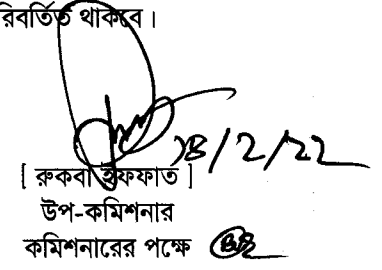 রিবর্তিত থাকবে।
18/2/22
[ রুকবা ইফফাত ]
উপ-কমিশনার
কমিশনারের পক্ষে